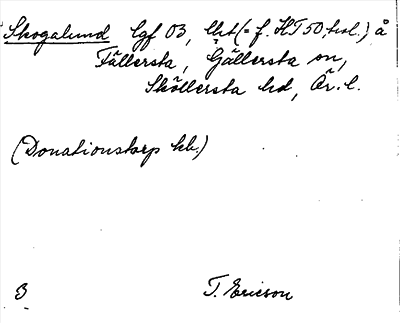 Skogalund lgf 03, lht (= f. HT 50, hsl.) å
Fällersta, Gällersta sn,
Sköllersta hd, Ör. l.
(Donationstorp kb.)
3
T. Ericson